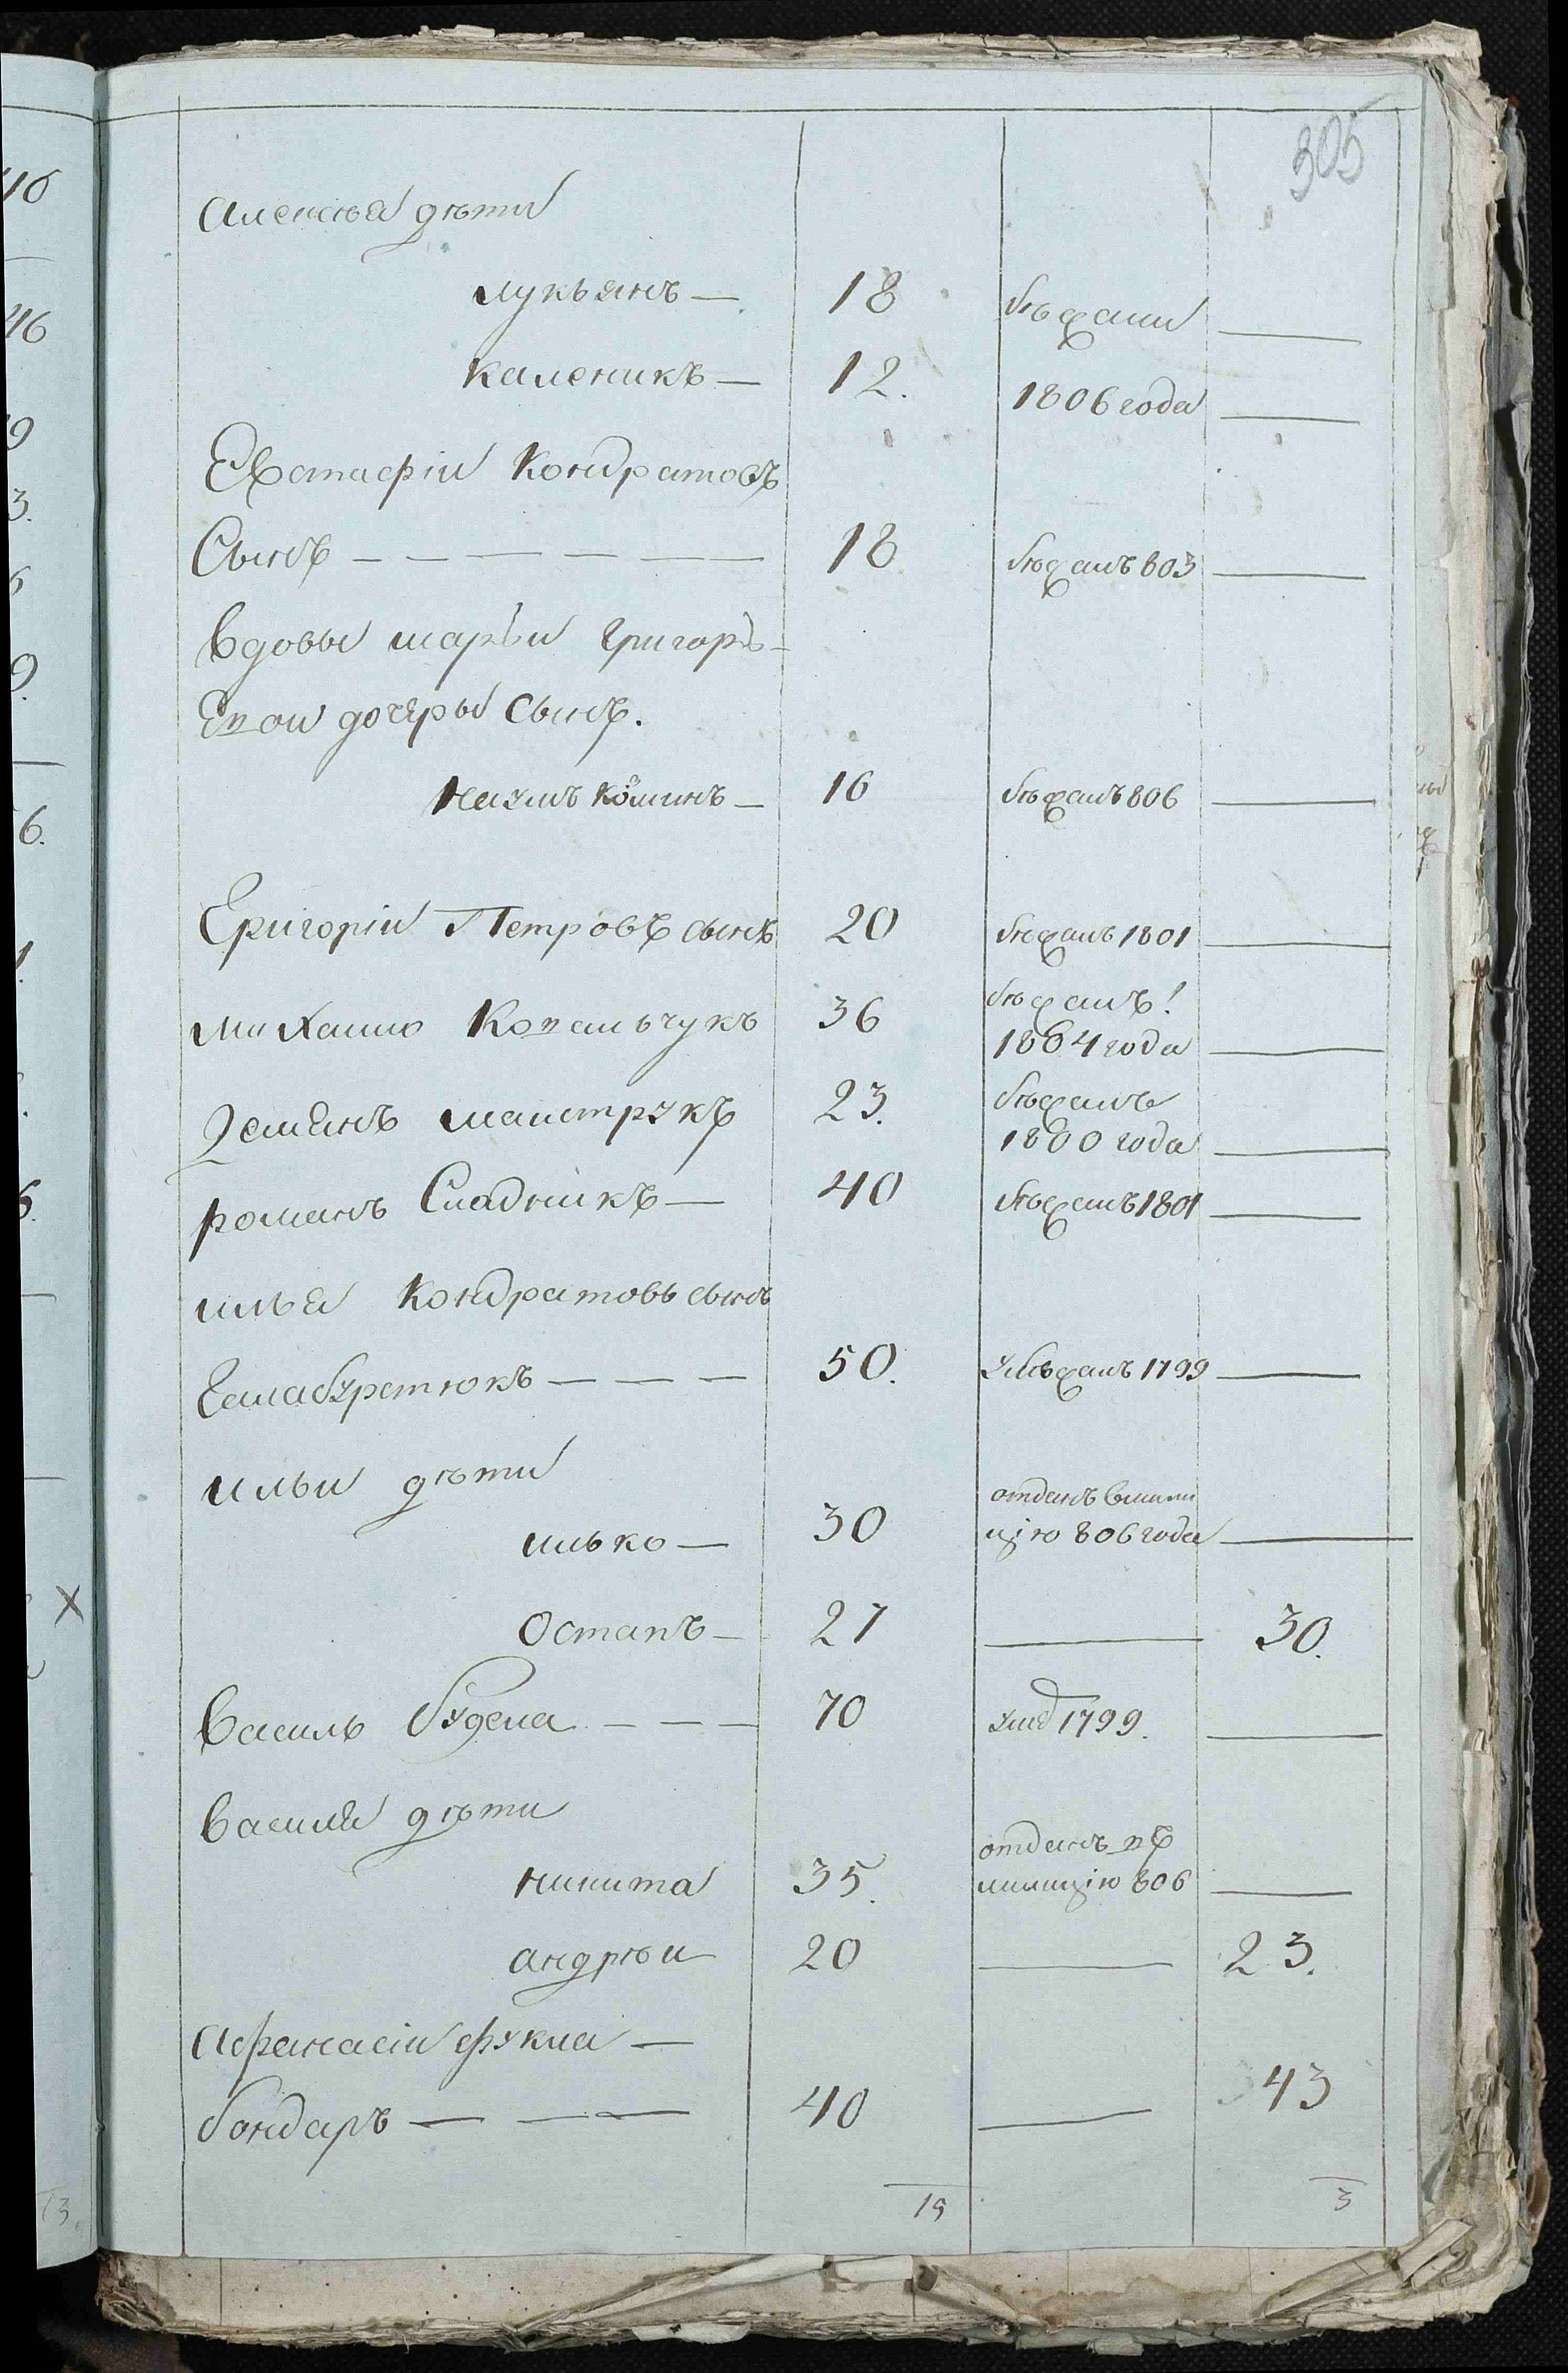 305
Алексѣя дѣти
Лукьянъ — 18 бѣжали —
Каленикъ — 12. 1806 года —
Евстафіи Кондратовъ
Сынъ — — — — — 18 бѣжалъ 803 —
Вдовы марьи григоръ-
Евои дочеры Сынъ.
наумъ — 16 бѣжалъ 806 —
Григоріи Петровъ сынъ 20 бѣжалъ 1801 —
михаило Ковальчукъ 36 бѣжалъ!
1804 года —
Демянъ маиструкъ 23. бѣжалъ
1800 года —
романъ Сладникъ — 40 бѣжалъ 1801 —
илья Кондратовъ сынъ
— — — 50. бѣжалъ 1799 —
Ильи дѣти
илько — 30 отданъ вмили
цію 806 года —
Остапъ — 27 — 30.
Василь будела — — — 70 умер 1799. —
Василя дѣти
никита 35. отданъ въ
милицію 806 —
андрѣи 20 — 23.
Афанасіи фукла —
бондаръ — — — 40 — 43
19 3